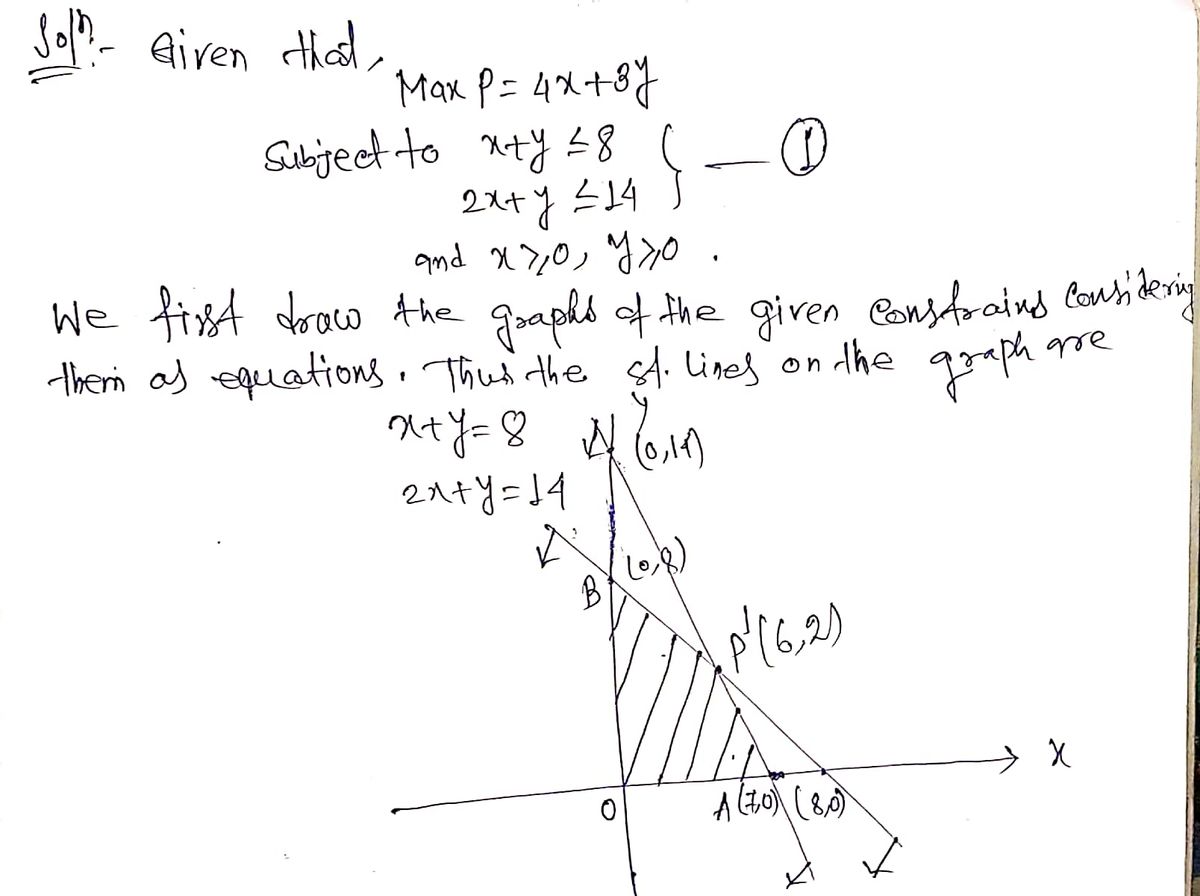 Solⁿ:- Given that,
Max P = 4x+3y
Subject to x+y ≤ 8
2x+y ≤ 14 } — ①
and x ≥ 0, y ≥ 0 .
We first draw the graphs of the given constrains Considering
them as equations. Thus the st. lines on the graph are
x+y = 8
2x+y = 14
y
(0,14)
B (0,8)
P'(6,2)
x
O A(7,0) (8,0)